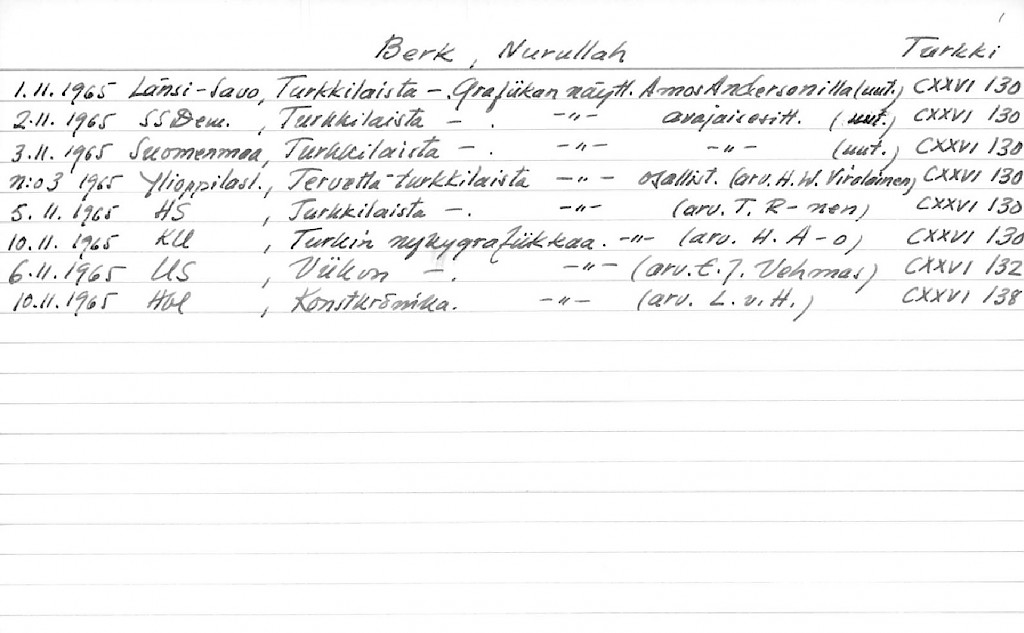 Berk, Nurullah Turkki
1.11.1965 Länsi-Savo, Turkkilaista -. Grafiikan näytt. Amos Andersonilla (uut.) CXXVI 130
2.11.1965 SSDem., Turkkilaista -. -"- avajaisesitt. (uut.) CXXVI 130
3.11.1965 Suomenmaa, Turkkilaista -. -"- -"- (uut.) CXXVI 130
n:o 3 1965 Ylioppilasl., Tervettä turkkilaista -"- osallist. (arv. H.W. Virolainen) CXXVI 130
5.11.1965 HS, Turkkilaista -. -"- (arv. T. R-nen) CXXVI 130
10.11.1965 KU, Turkin nykygrafiikkaa. -"- (arv. H. A-o) CXXVI 130
6.11.1965 US, Viikon -. -"- (arv. E.J. Vehmas) CXXVI 132
10.11.1965 Hbl, Konstkrönika. -"- (arv. L.v.H.) CXXVI 138